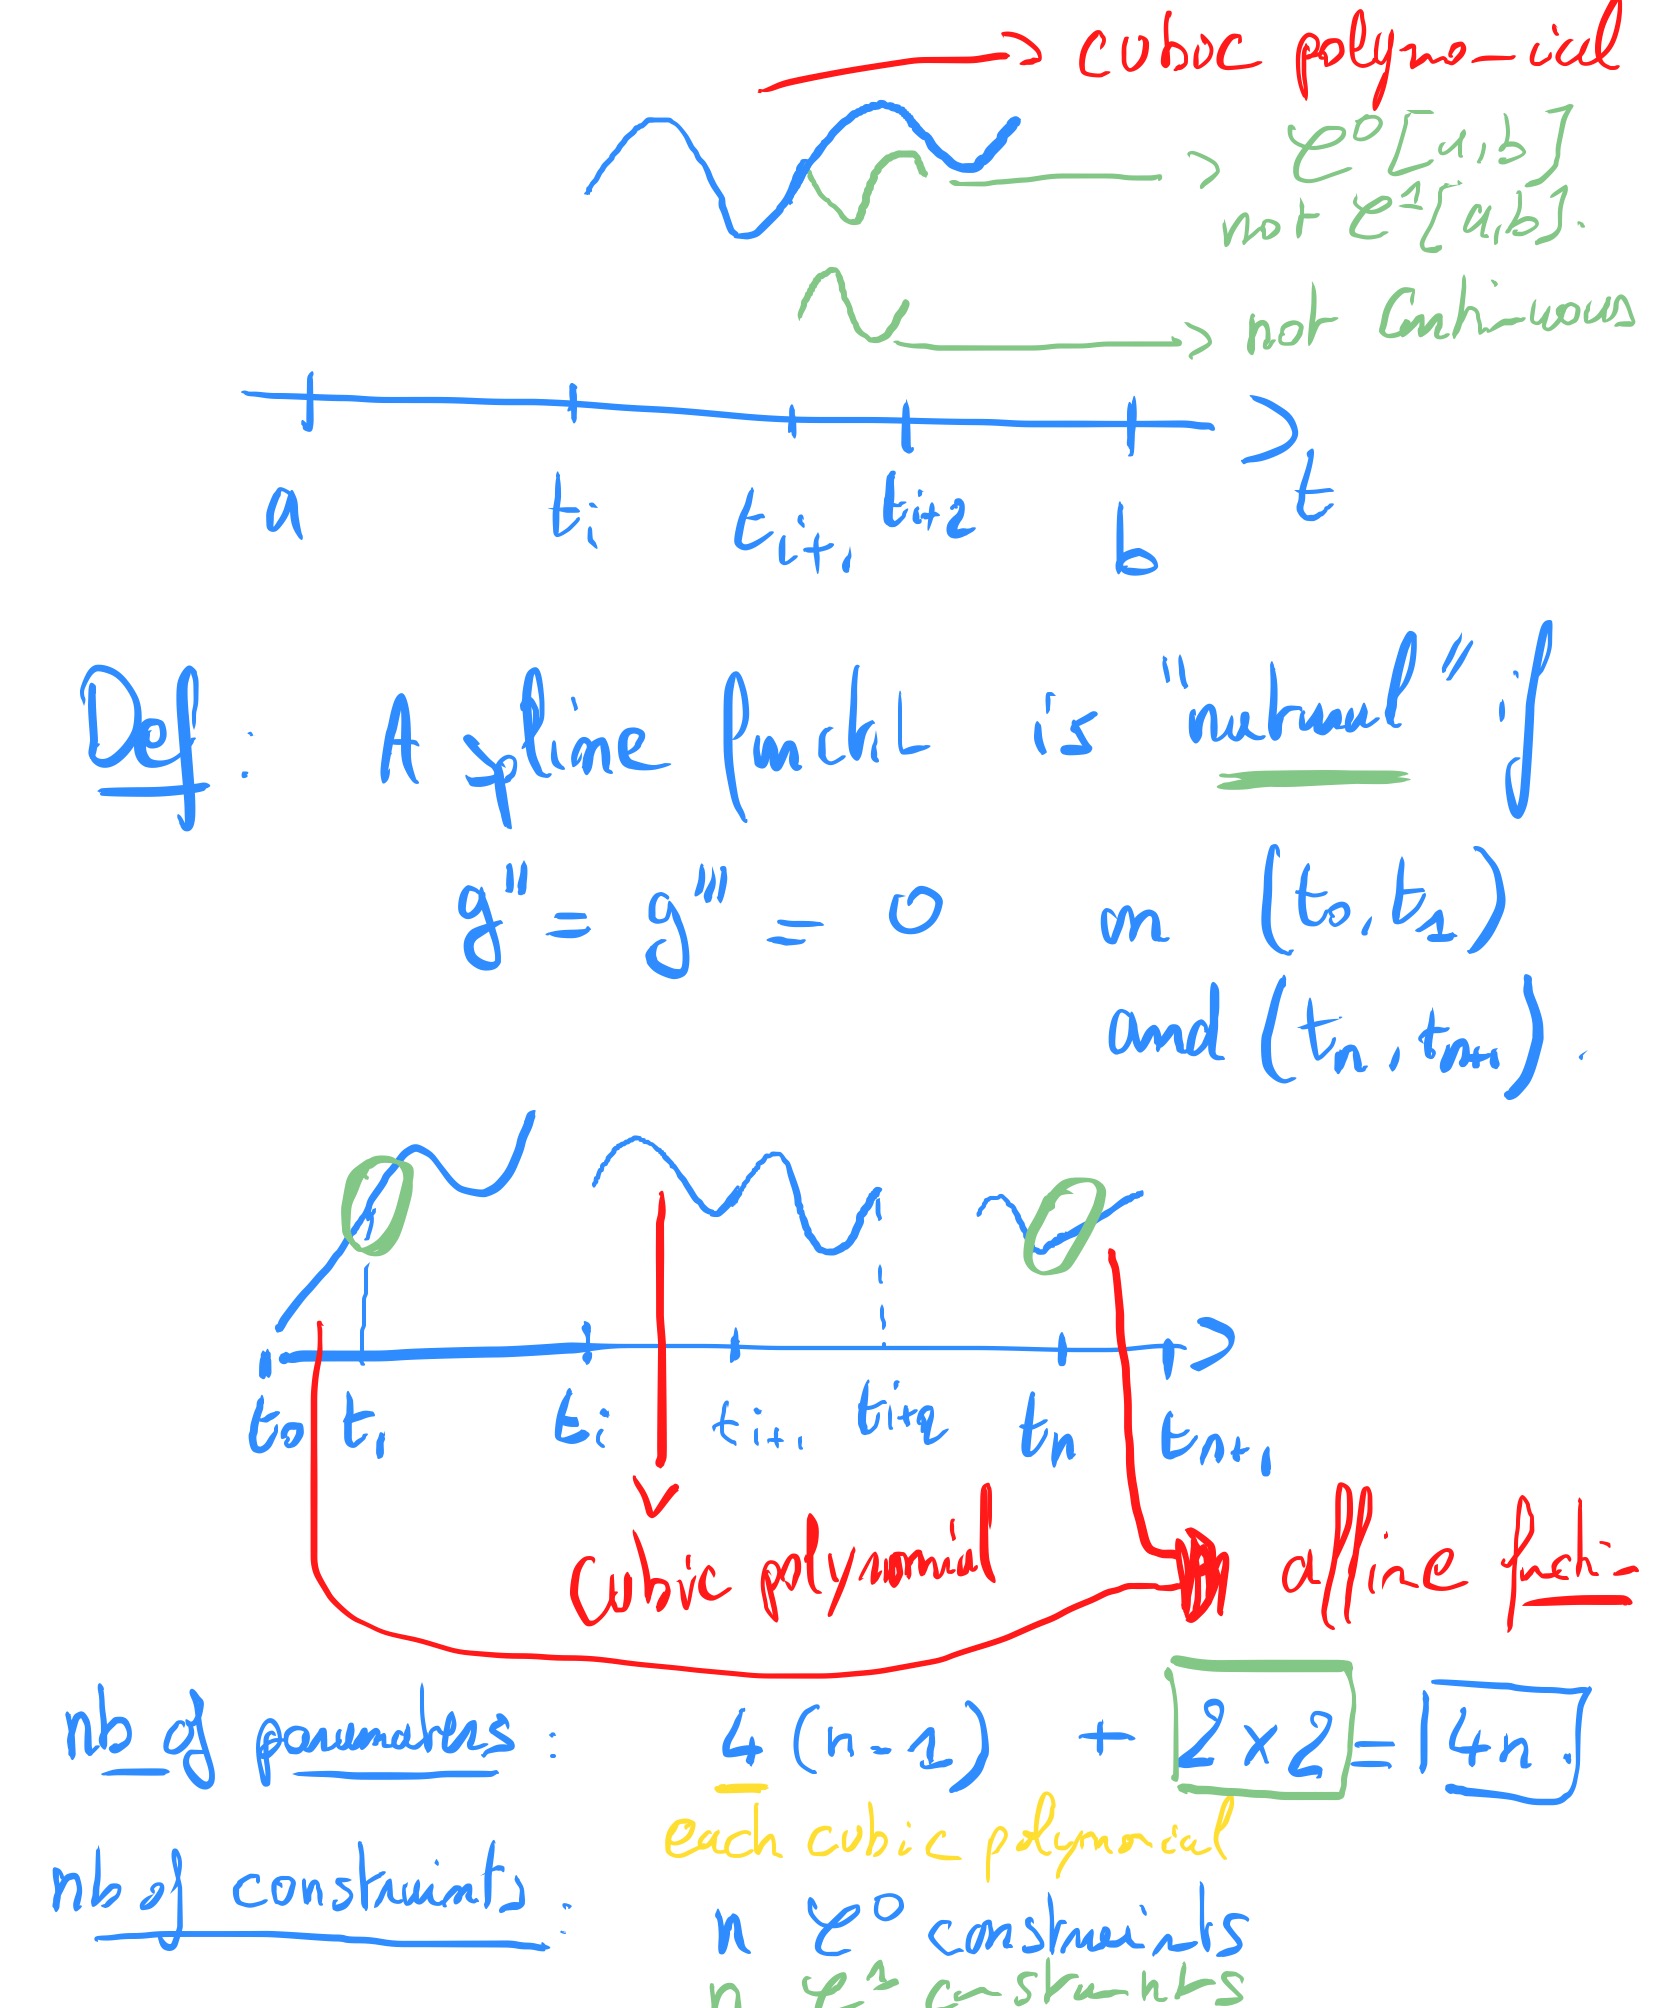 cubic polynomial
𝒞⁰[a,b]
not 𝒞¹[a,b].
not continuous
a tᵢ tᵢ₊₁ tᵢ₊₂ b t
Def: A spline funct is "natural" if
g'' = g''' = 0 on (t₀, t₁)
and (tₙ, tₙ₊₁).
t₀ t₁ tᵢ tᵢ₊₁ tᵢ₊₂ tₙ tₙ₊₁
cubic polynomial affine function
nb of parameters: 4 (n-1) + 2×2 = 4n.
each cubic polynomial
nb of constraints: n 𝒞⁰ constraints
n 𝒞¹ constraints